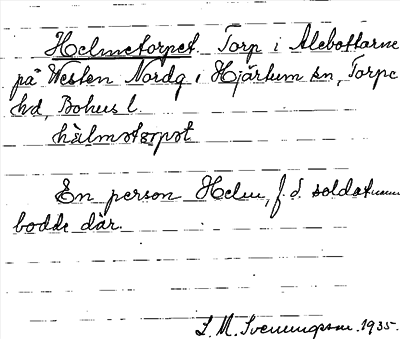 Helmetorpet Torp i Alebottarne
på Westen Nordg i Hjärtum sn, Torpe
hd, Bohus l.
hälmetorpet
En person Helm, f. d. soldat
bodde där.
S. M. Svenungsson. 1935.